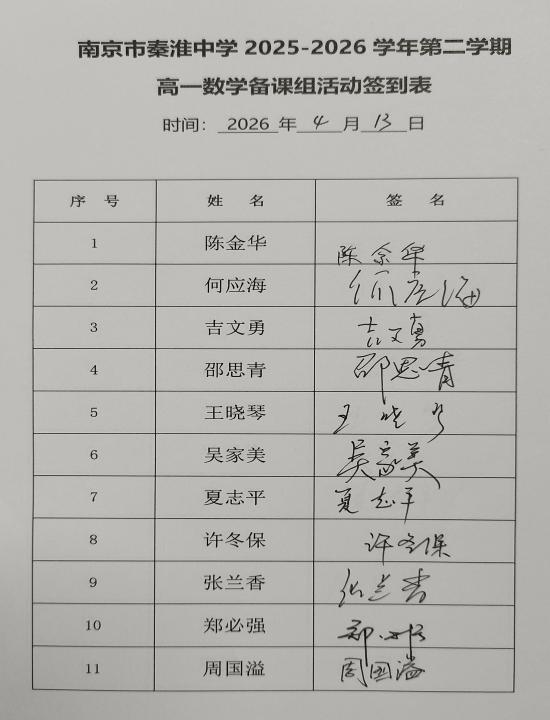 南京市秦淮中学 2025-2026 学年第二学期
高一数学备课组活动签到表
时间： 2026 年 4 月 13 日
序 号 姓 名 签 名
1 陈金华 陈金华
2 何应海 何应海
3 吉文勇 吉文勇
4 邵思青 邵思青
5 王晓琴 王晓琴
6 吴家美 吴家美
7 夏志平 夏志平
8 许冬保 许冬保
9 张兰香 张兰香
10 郑必强 郑必强
11 周国溢 周国溢